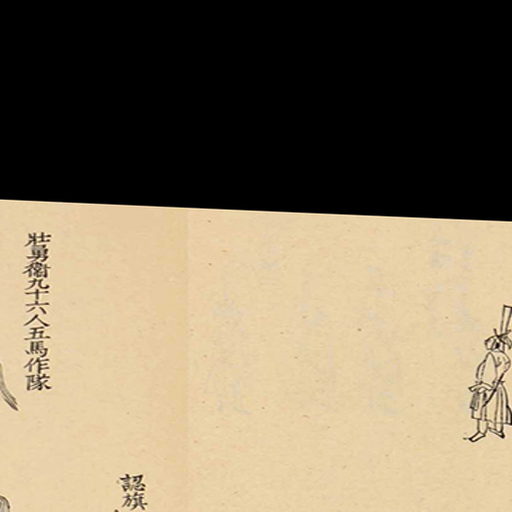 認旗
壯勇衛九十六人五馬作隊